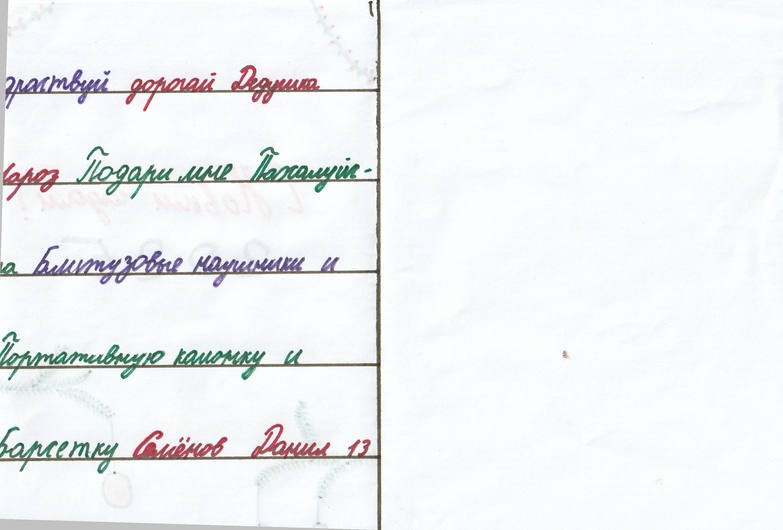 драствуй дорогай Дедушка
Мароз Подари мне Пажалуйс-
та Блютузовые наушники и
Портативную калонку и
Барсетку Семёнов Данил 13